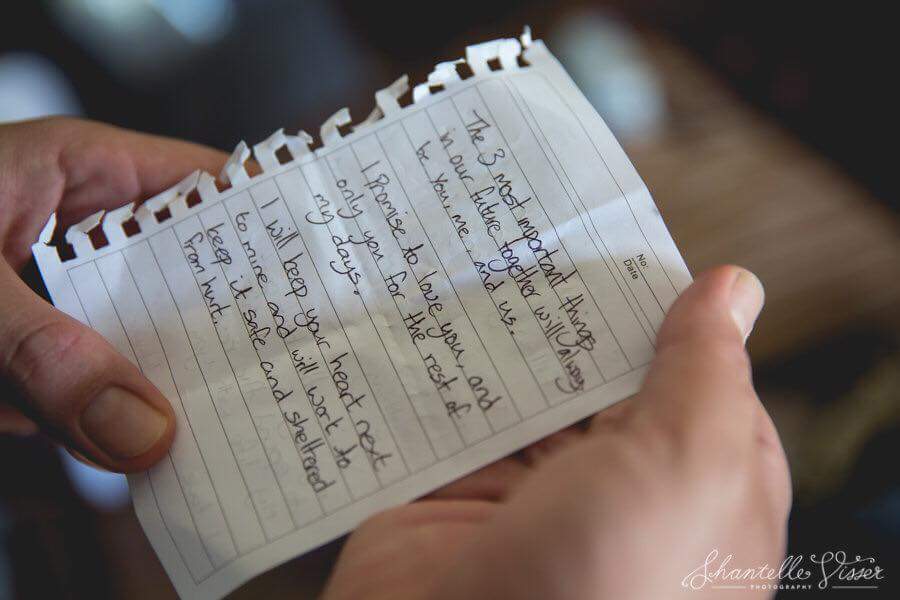 No:
Date
The 3 most important things
in our future together will always
be you, me, and us.
I Promise to love you, and
only you for the rest of
my days.
I will keep your heart next
to mine and will work to
keep it safe and sheltered
from hurt.
Shantelle Visser
PHOTOGRAPHY